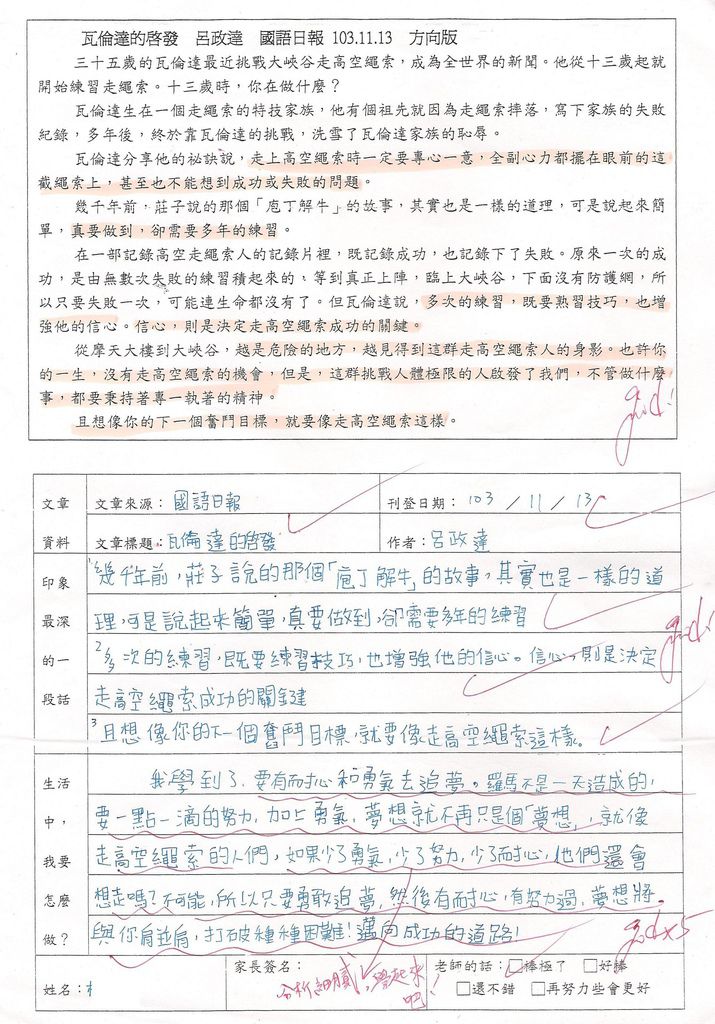 瓦倫達的啓發 呂政達 國語日報 103.11.13 方向版
三十五歲的瓦倫達最近挑戰大峽谷走高空繩索,成為全世界的新聞。他從十三歲起就
開始練習走繩索。十三歲時,你在做什麼?
瓦倫達生在一個走繩索的特技家族,他有個祖先就因為走繩索摔落,寫下家族的失敗
紀錄,多年後,終於靠瓦倫達的挑戰,洗雪了瓦倫達家族的恥辱。
瓦倫達分享他的祕訣說,走上高空繩索時一定要專心一意,全副心力都擺在眼前的這
截繩索上,甚至也不能想到成功或失敗的問題。
幾千年前,莊子說的那個「庖丁解牛」的故事,其實也是一樣的道理,可是說起來簡
單,真要做到,卻需要多年的練習。
在一部記錄高空走繩索人的記錄片裡,既記錄成功,也記錄下了失敗。原來一次的成
功,是由無數次失敗的練習積起來的,等到真正上陣,臨上大峽谷,下面沒有防護網,所
以只要失敗一次,可能連生命都沒有了。但瓦倫達說,多次的練習,既要熟習技巧,也增
強他的信心。信心,則是決定走高空繩索成功的關鍵。
從摩天大樓到大峽谷,越是危險的地方,越見得到這群走高空繩索人的身影。也許你
的一生,沒有走高空繩索的機會,但是,這群挑戰人體極限的人啟發了我們,不管做什麼
事,都要秉持著專一執著的精神。
且想像你的下一個奮鬥目標,就要像走高空繩索這樣。
good!
文章 文章來源:國語日報 刊登日期:103/11/13
資料 文章標題:瓦倫達的啓發 作者:呂政達
印象 1幾千年前,莊子說的那個「庖丁解牛」的故事,其實也是一樣的道
最深 理,可是說起來簡單,真要做到,卻需要多年的練習
的一 2多次的練習,既要練習技巧,也增強他的信心。信心,則是決定
段話 走高空繩索成功的關鍵
3且想像你的下一個奮鬥目標,就要像走高空繩索這樣。
good!
生活 我學到了,要有耐心和勇氣去追夢。羅馬不是一天造成的,
中, 要一點一滴的努力,加上勇氣,夢想就不再只是個「夢想」,就像
我要 走高空繩索的人們,如果少了勇氣,少了努力,少了耐心,他們還會
怎麼 想走嗎?不可能,所以只要勇敢追夢,然後有耐心,有努力過,夢想將
做? 與你肩並肩,打破種種困難!邁向成功的道路!
good x5
姓名: 家長簽名: 老師的話:□棒極了 □好棒
□還不錯 □再努力些會更好
分析細膩,學起來
吧!